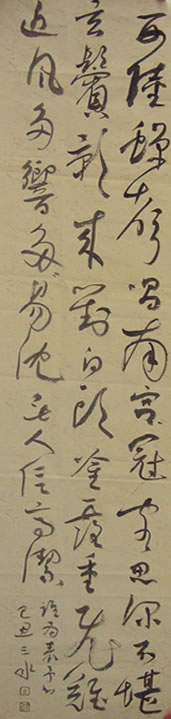 西陸蟬聲唱南宫冠客思深不堪
玄鬢影來對白頭吟露重飛難
進風多響多易沈無人信高潔
誰為表予心
己丑三水